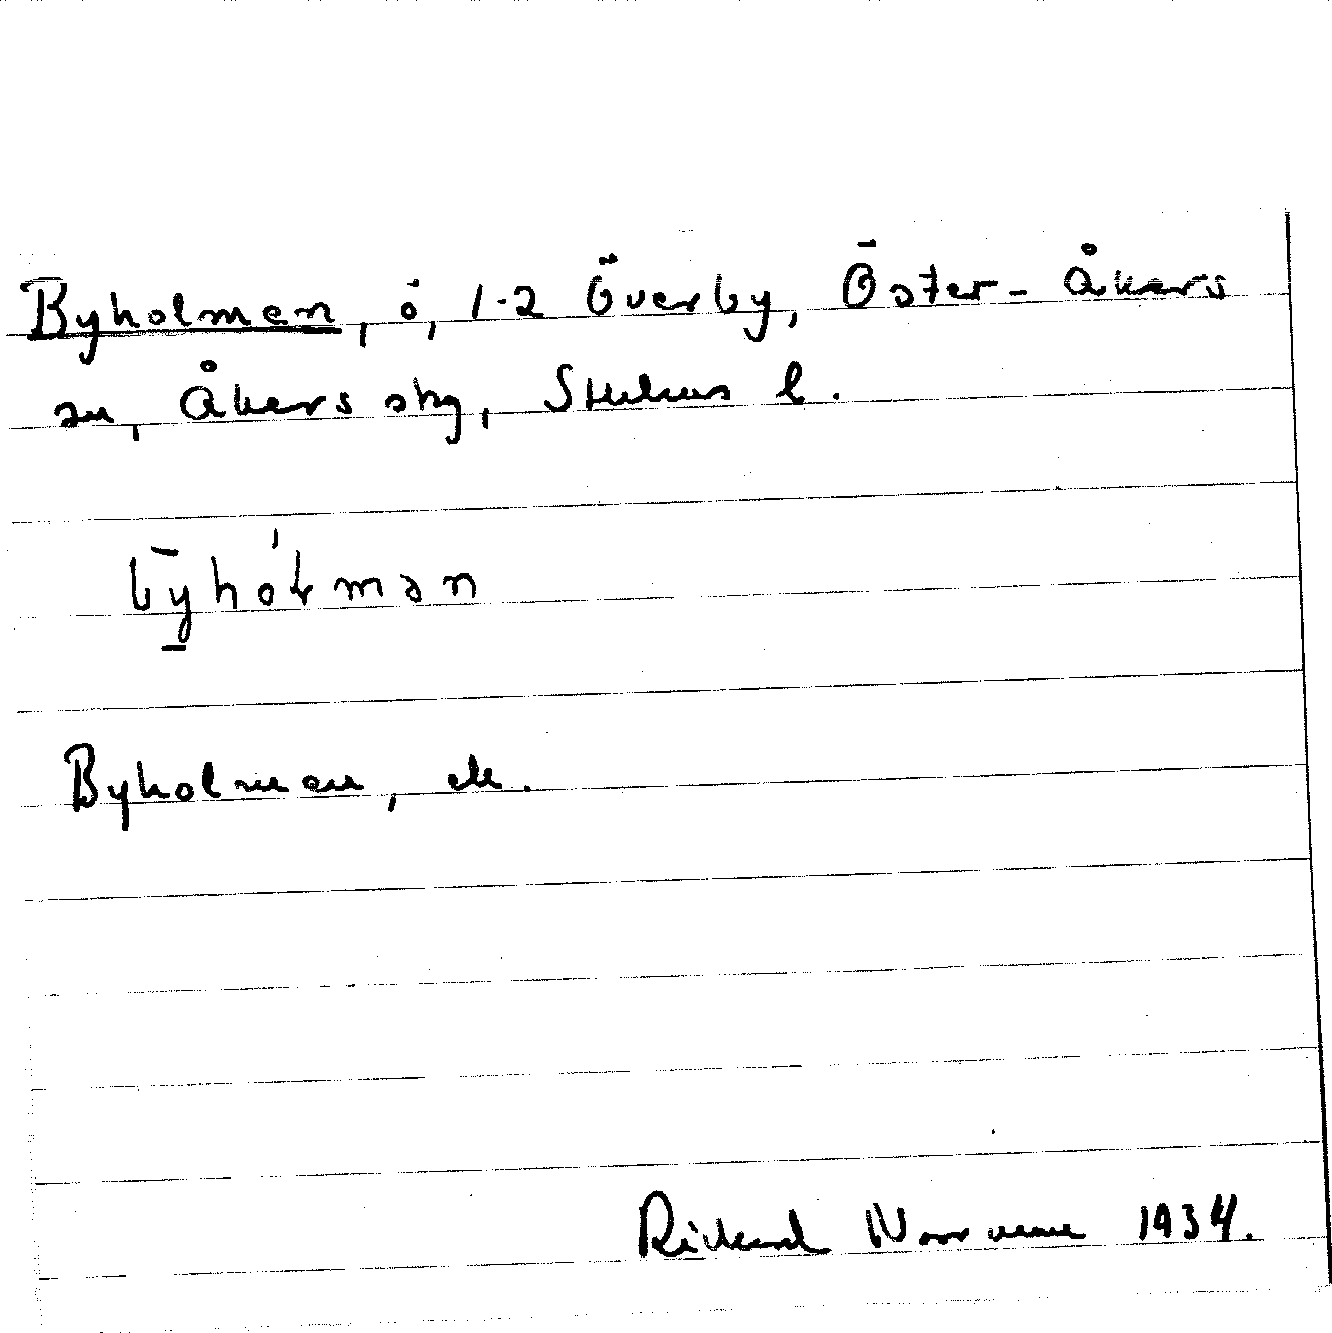 Byholmen, ö, 1-2 Överby, Öster-Åkers
sn, Åkers skg, Sthlms l.
bȳ̱hóĺmən
Byholmen, ek.
Rickard Norrman 1934.